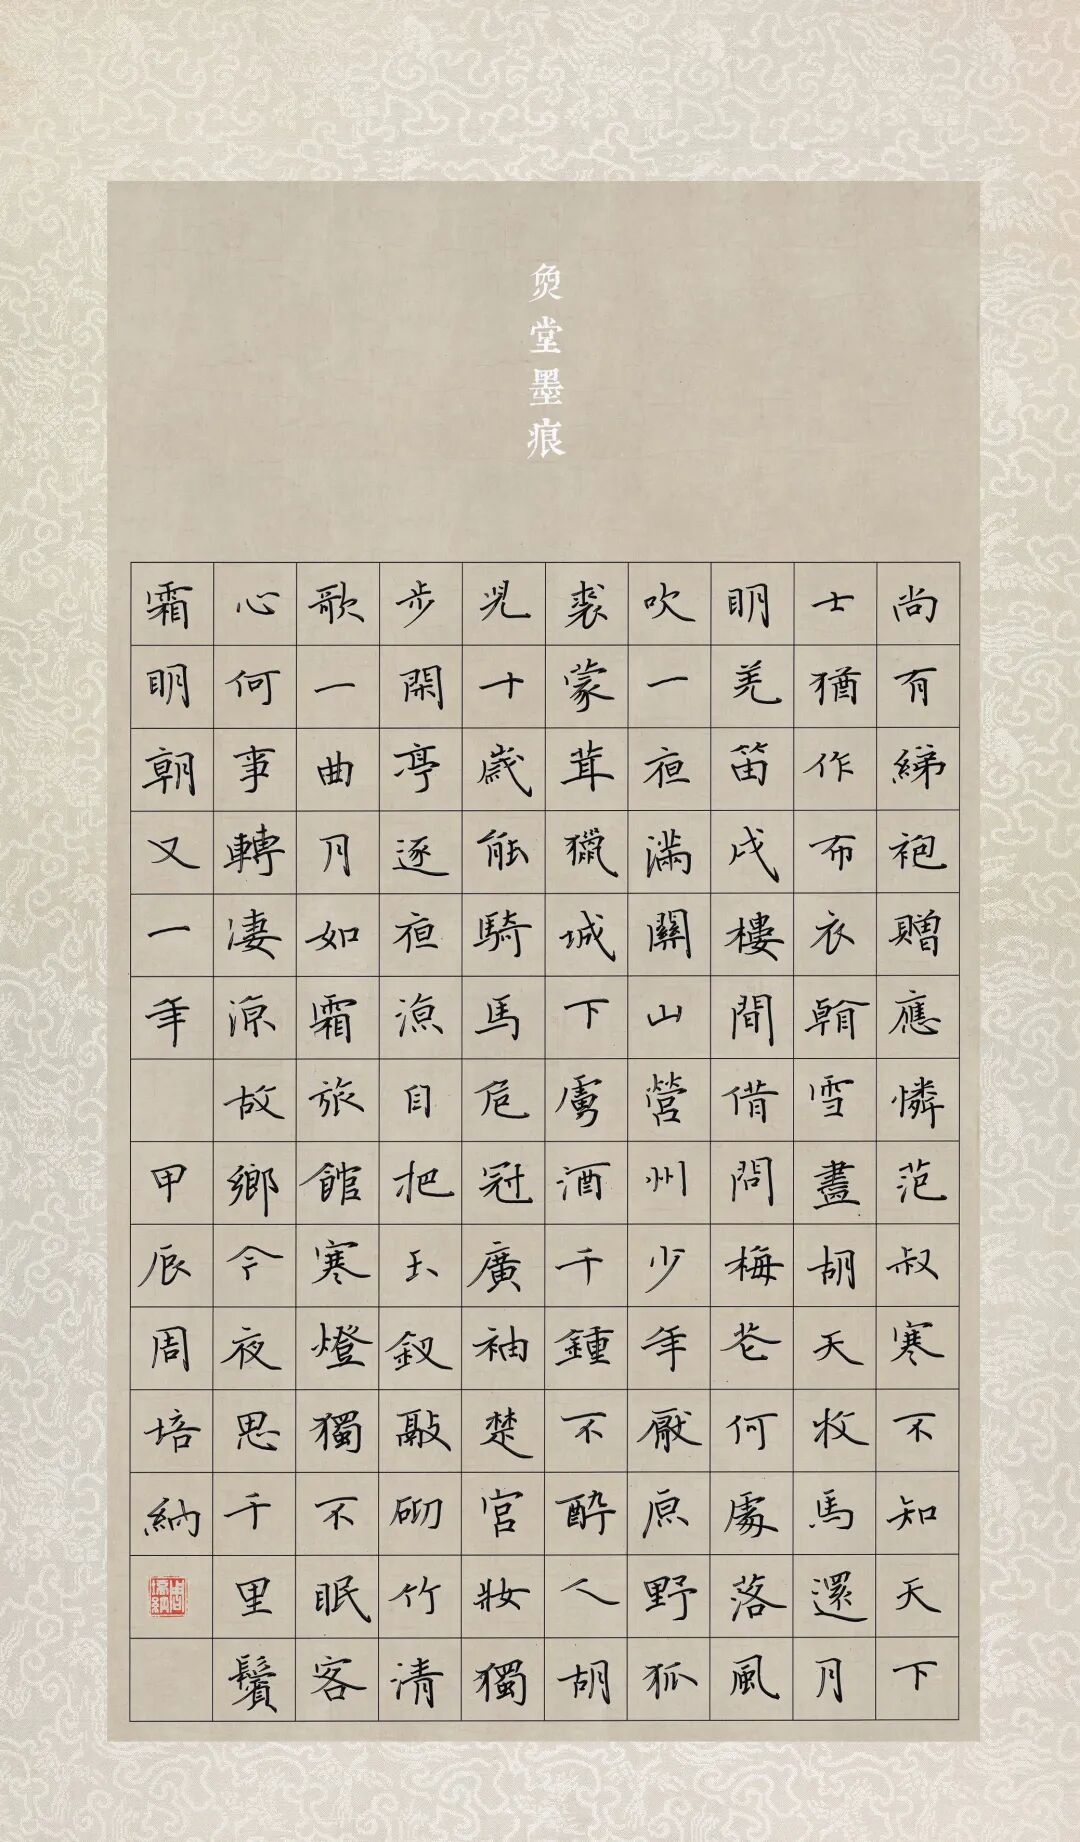 堂墨痕
尚有綈袍贈應憐范叔寒不知天下
士猶作布衣雪盡胡天牧馬還月
明羌笛戍樓間借問梅花何處落風
吹一夜滿關山營州少年厭原野狐
裘蒙茸獵城下虜酒千鍾不醉人胡
兒十歲能騎馬危冠廣袖楚宮妝獨
步閑亭逐夜涼自把玉釵敲砌竹清
歌一曲月如霜旅館寒燈獨不眠客
心何事轉凄涼故鄉今夜思千里鬢
霜明朝又一年 甲辰周培納